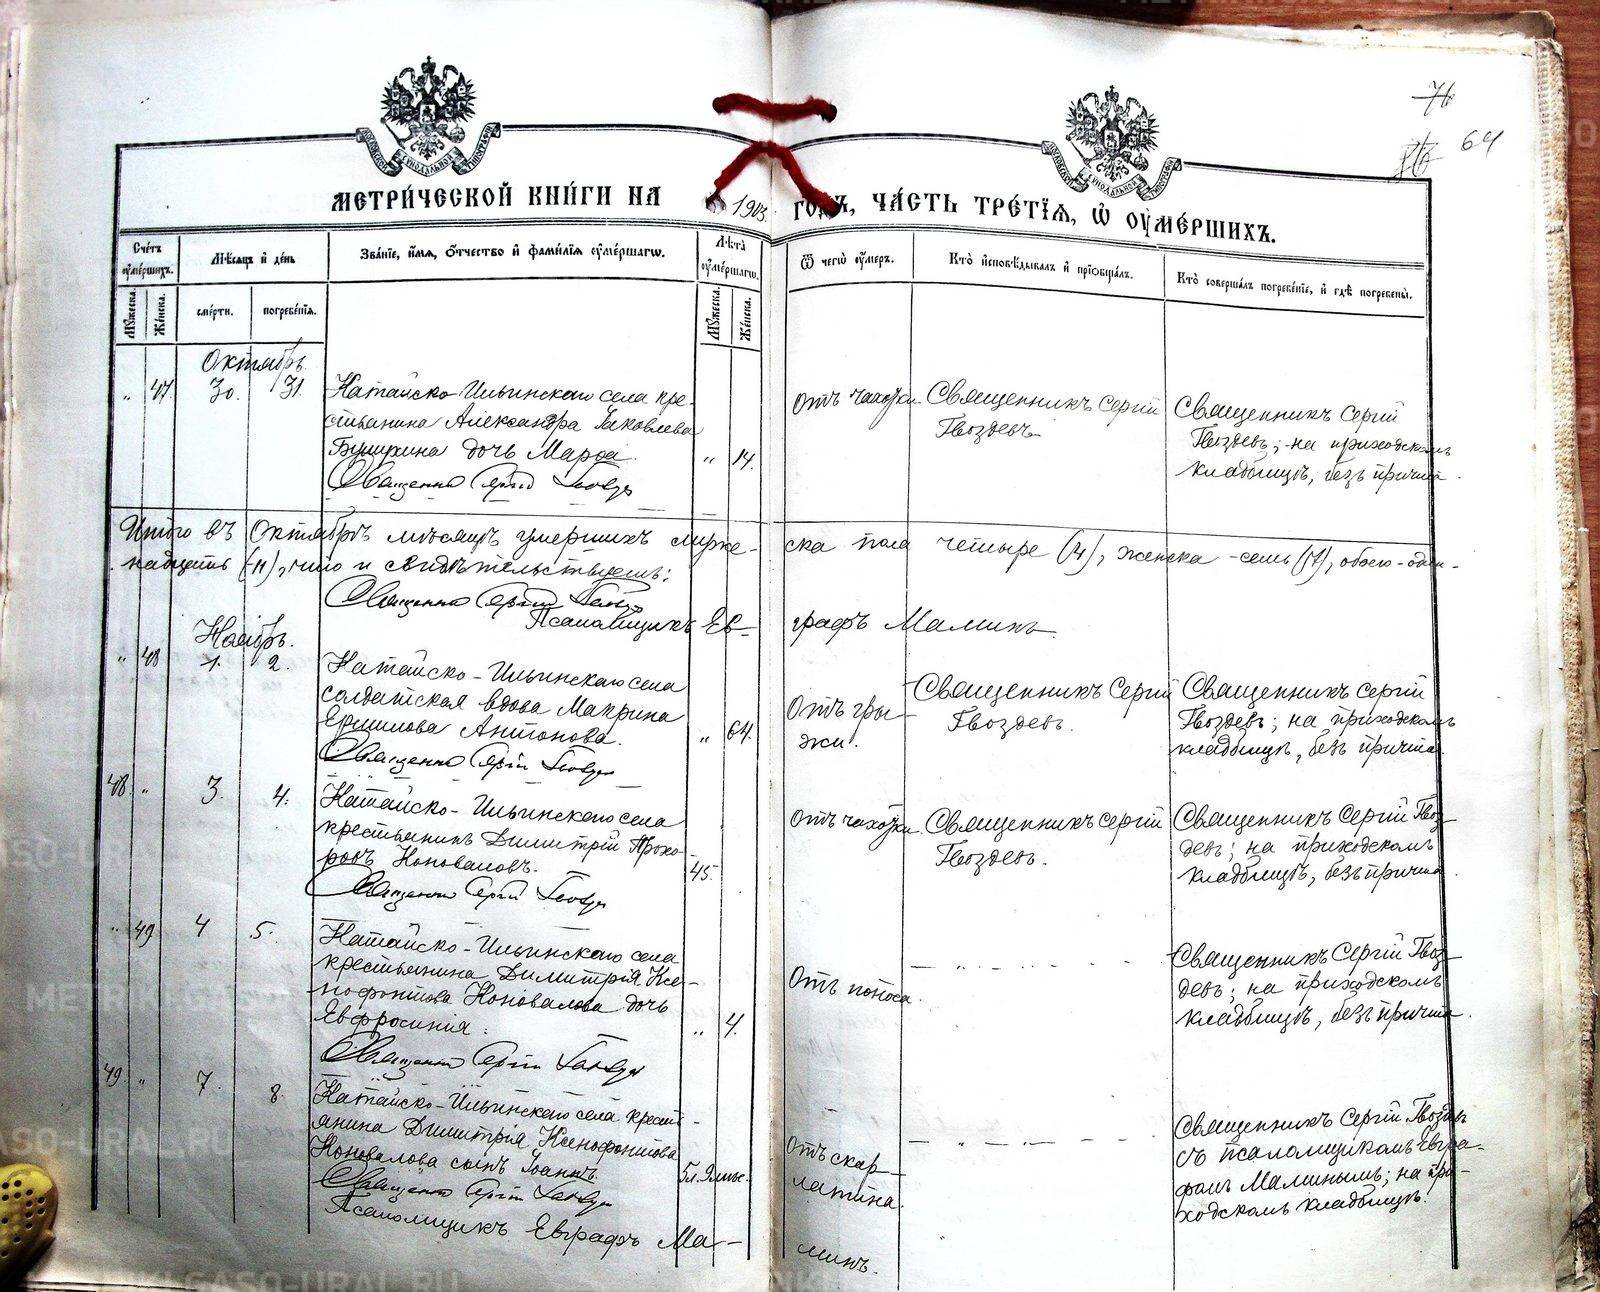 76
64
МЕТРИ́ЧЕСКОЙ КНИ́ГИ НА 1903 ГОДЪ, ЧА́СТЬ ТРЕ́ТІЯ, Ѡ ОУМЕ́РШИХЪ.
Сче́тъ оуме́ршихъ.
Мѣ́сяцъ и де́нь
Зва́ніе, и́мя, о́тчество и фами́лія оуме́ршагѡ.
Лѣ́та оуме́ршагѡ.
Ѿ чегѡ̀ оу́меръ.
Кто̀ исповѣ́дывалъ и пріобща́лъ.
Кто̀ соверша́лъ погребе́ніе, и гдѣ̀ погребены̀.
Му́жеска.
Же́нска.
сме́рти.
погребе́нія.
Му́жеска.
Же́нска.
Октябрь.
" 47 30. 31.
Катайско-Ильинскаго села кре-
стьянина Александра Іаковлева
Бушухина дочь Марѳа.
" 14.
Священникъ Сергій Гвоздевъ
Отъ чахотки.
Священникъ Сергій
Гвоздевъ
Священникъ Сергій
Гвоздевъ; на приходскомъ
кладбищѣ, безъ причта.
Итого въ Октябрѣ мѣсяцѣ умершихъ муже- ска пола четыре (4), женска - семь (7), обоего - один-
надцать (11), что и свидѣтельствуемъ:
Священникъ Сергій Гвоздевъ
Псаломщикъ Ев- графъ Маминъ
Ноябрь.
" 48 1. 2.
Катайско-Ильинскаго села
солдатская вдова Макрина
Ермилова Антонова.
" 64.
Священникъ Сергій Гвоздевъ
Отъ гры-
жи.
Священникъ Сергій
Гвоздевъ.
Священникъ Сергій
Гвоздевъ; на приходскомъ
кладбищѣ, безъ причта.
48. " 3. 4.
Катайско-Ильинскаго села
крестьянинъ Димитрій Прохо-
ровъ Коноваловъ.
45.
Священникъ Сергій Гвоздевъ
Отъ чахотки
Священникъ Сергій
Гвоздевъ.
Священникъ Сергій Гвоз-
девъ; на приходскомъ
кладбищѣ, безъ причта.
" 49 4 5.
Катайско-Ильинскаго села
крестьянина Димитрія Ксе-
нофонтова Коновалова дочь
Евфросинія.
" 4.
Священникъ Сергій Гвоздевъ
Отъ поноса.
Священникъ Сергій Гвоз-
девъ; на приходскомъ
кладбищѣ, безъ причта.
49. " 7. 8.
Катайско-Ильинскаго села кресть-
янина Димитрія Ксенофонтова
Коновалова сынъ Іоаннъ.
5л. 9мѣс.
Священникъ Сергій Гвоздевъ
Псаломщикъ Евграфъ Ма- минъ.
Отъ скар-
латина.
Священникъ Сергій Гвоздевъ
съ псаломщикомъ Евгра-
фомъ Маминымъ; на при-
ходскомъ кладбищѣ.